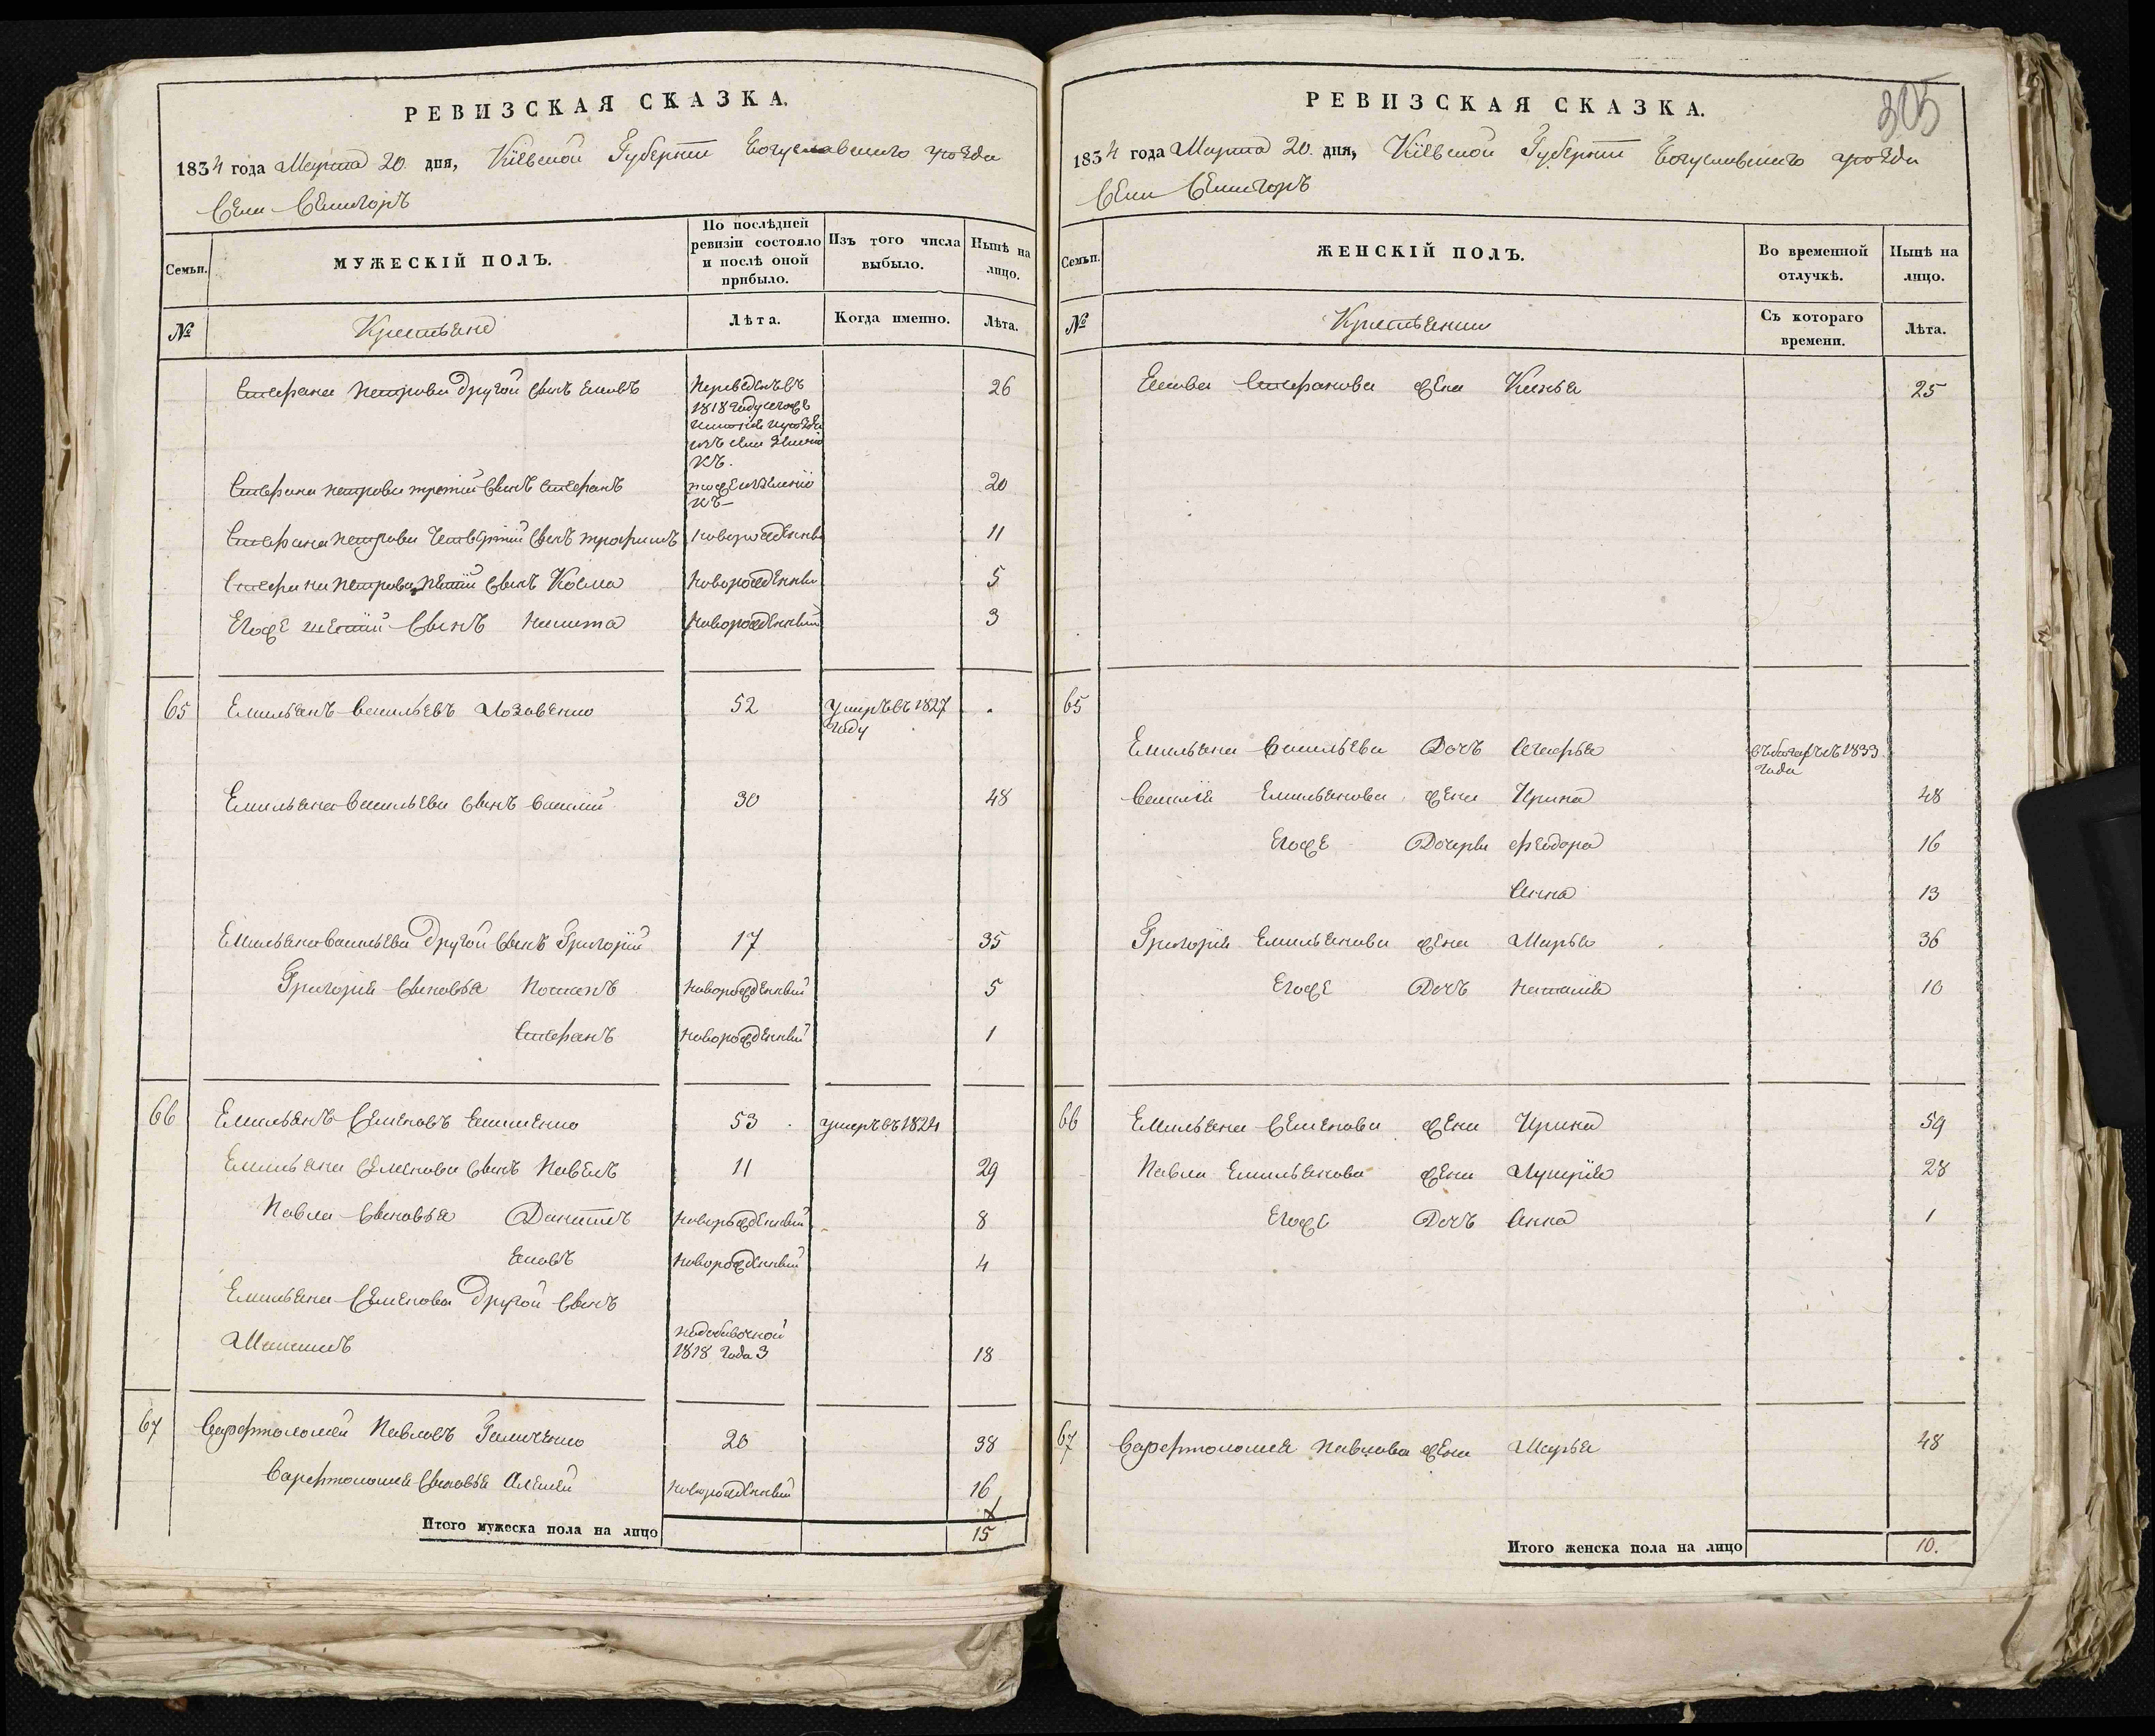 РЕВИЗСКАЯ СКАЗКА.
1834 года Марта 20 дня, Кіевской Губерніи Богуславского уѣзда
Села Семигоръ
Семьи.
МУЖЕСКІЙ ПОЛЪ.
По послѣдней ревизіи состояло и послѣ оной прибыло.
Изъ того числа выбыло.
Нынѣ на лицо.
№
Крестьяне
Лѣта.
Когда именно.
Лѣта.
Стефана Петрова другой сынъ Яковъ
Переведенъ въ
1818 году
26
Стефана Петрова третій сынъ Стефанъ
20
Стефана Петрова четвертій сынъ Трофимъ новорожденны 11
Стефана Петрова пятій сынъ Косма новорожденны 5
Егоже шестій сынъ Никита новорожденный 3
65 Емильянъ Васильевъ Лозовенко 52 умръ въ 1827
году
Емильяна Васильева сынъ Василій 30 48
Емильяна Васильева другой сынъ Григорій 17 35
Григорія сыновья новорожденный 5
Стефанъ новорожденный 1
66 Емильянъ Семеновъ 53 умеръ въ 1824
Емильяна Семенова сынъ Павелъ 11 29
Павла сыновья Даніилъ новорожденный 8
Яковъ новорожденный 4
Емильяна Семенова другой сынъ
Максимъ
1818 года 3 18
67 Варфтоломей Павловъ Галиченко 20 38
Варфтоломея сыновья Алексей новорожденный 16
Итого мужеска пола на лицо 15
РЕВИЗСКАЯ СКАЗКА.
305
1834 года Марта 20 дня, Кіевской Губерніи Богуславского уѣзда
Села Семигоръ
Семьи.
ЖЕНСКІЙ ПОЛЪ.
Во временной отлучкѣ.
Нынѣ на лицо.
№
Крестьянки
Съ котораго времени.
Лѣта.
Якова Стефанова жена 25
65
Емильяна Васильева дочь Агафья
1833
года
Василія Емильянова жена Ирина 48
Егоже дочери Феодора 16
Анна 13
Григорія Емильянова жена Марья 36
Егоже дочь Наталія 10
66 Емильяна Семенова жена Ирина 59
Павла Емильянова жена Лукерія 28
Егоже дочь Анна 1
67 Варфтоломея Павлова жена Марья 48
Итого женска пола на лицо 10.